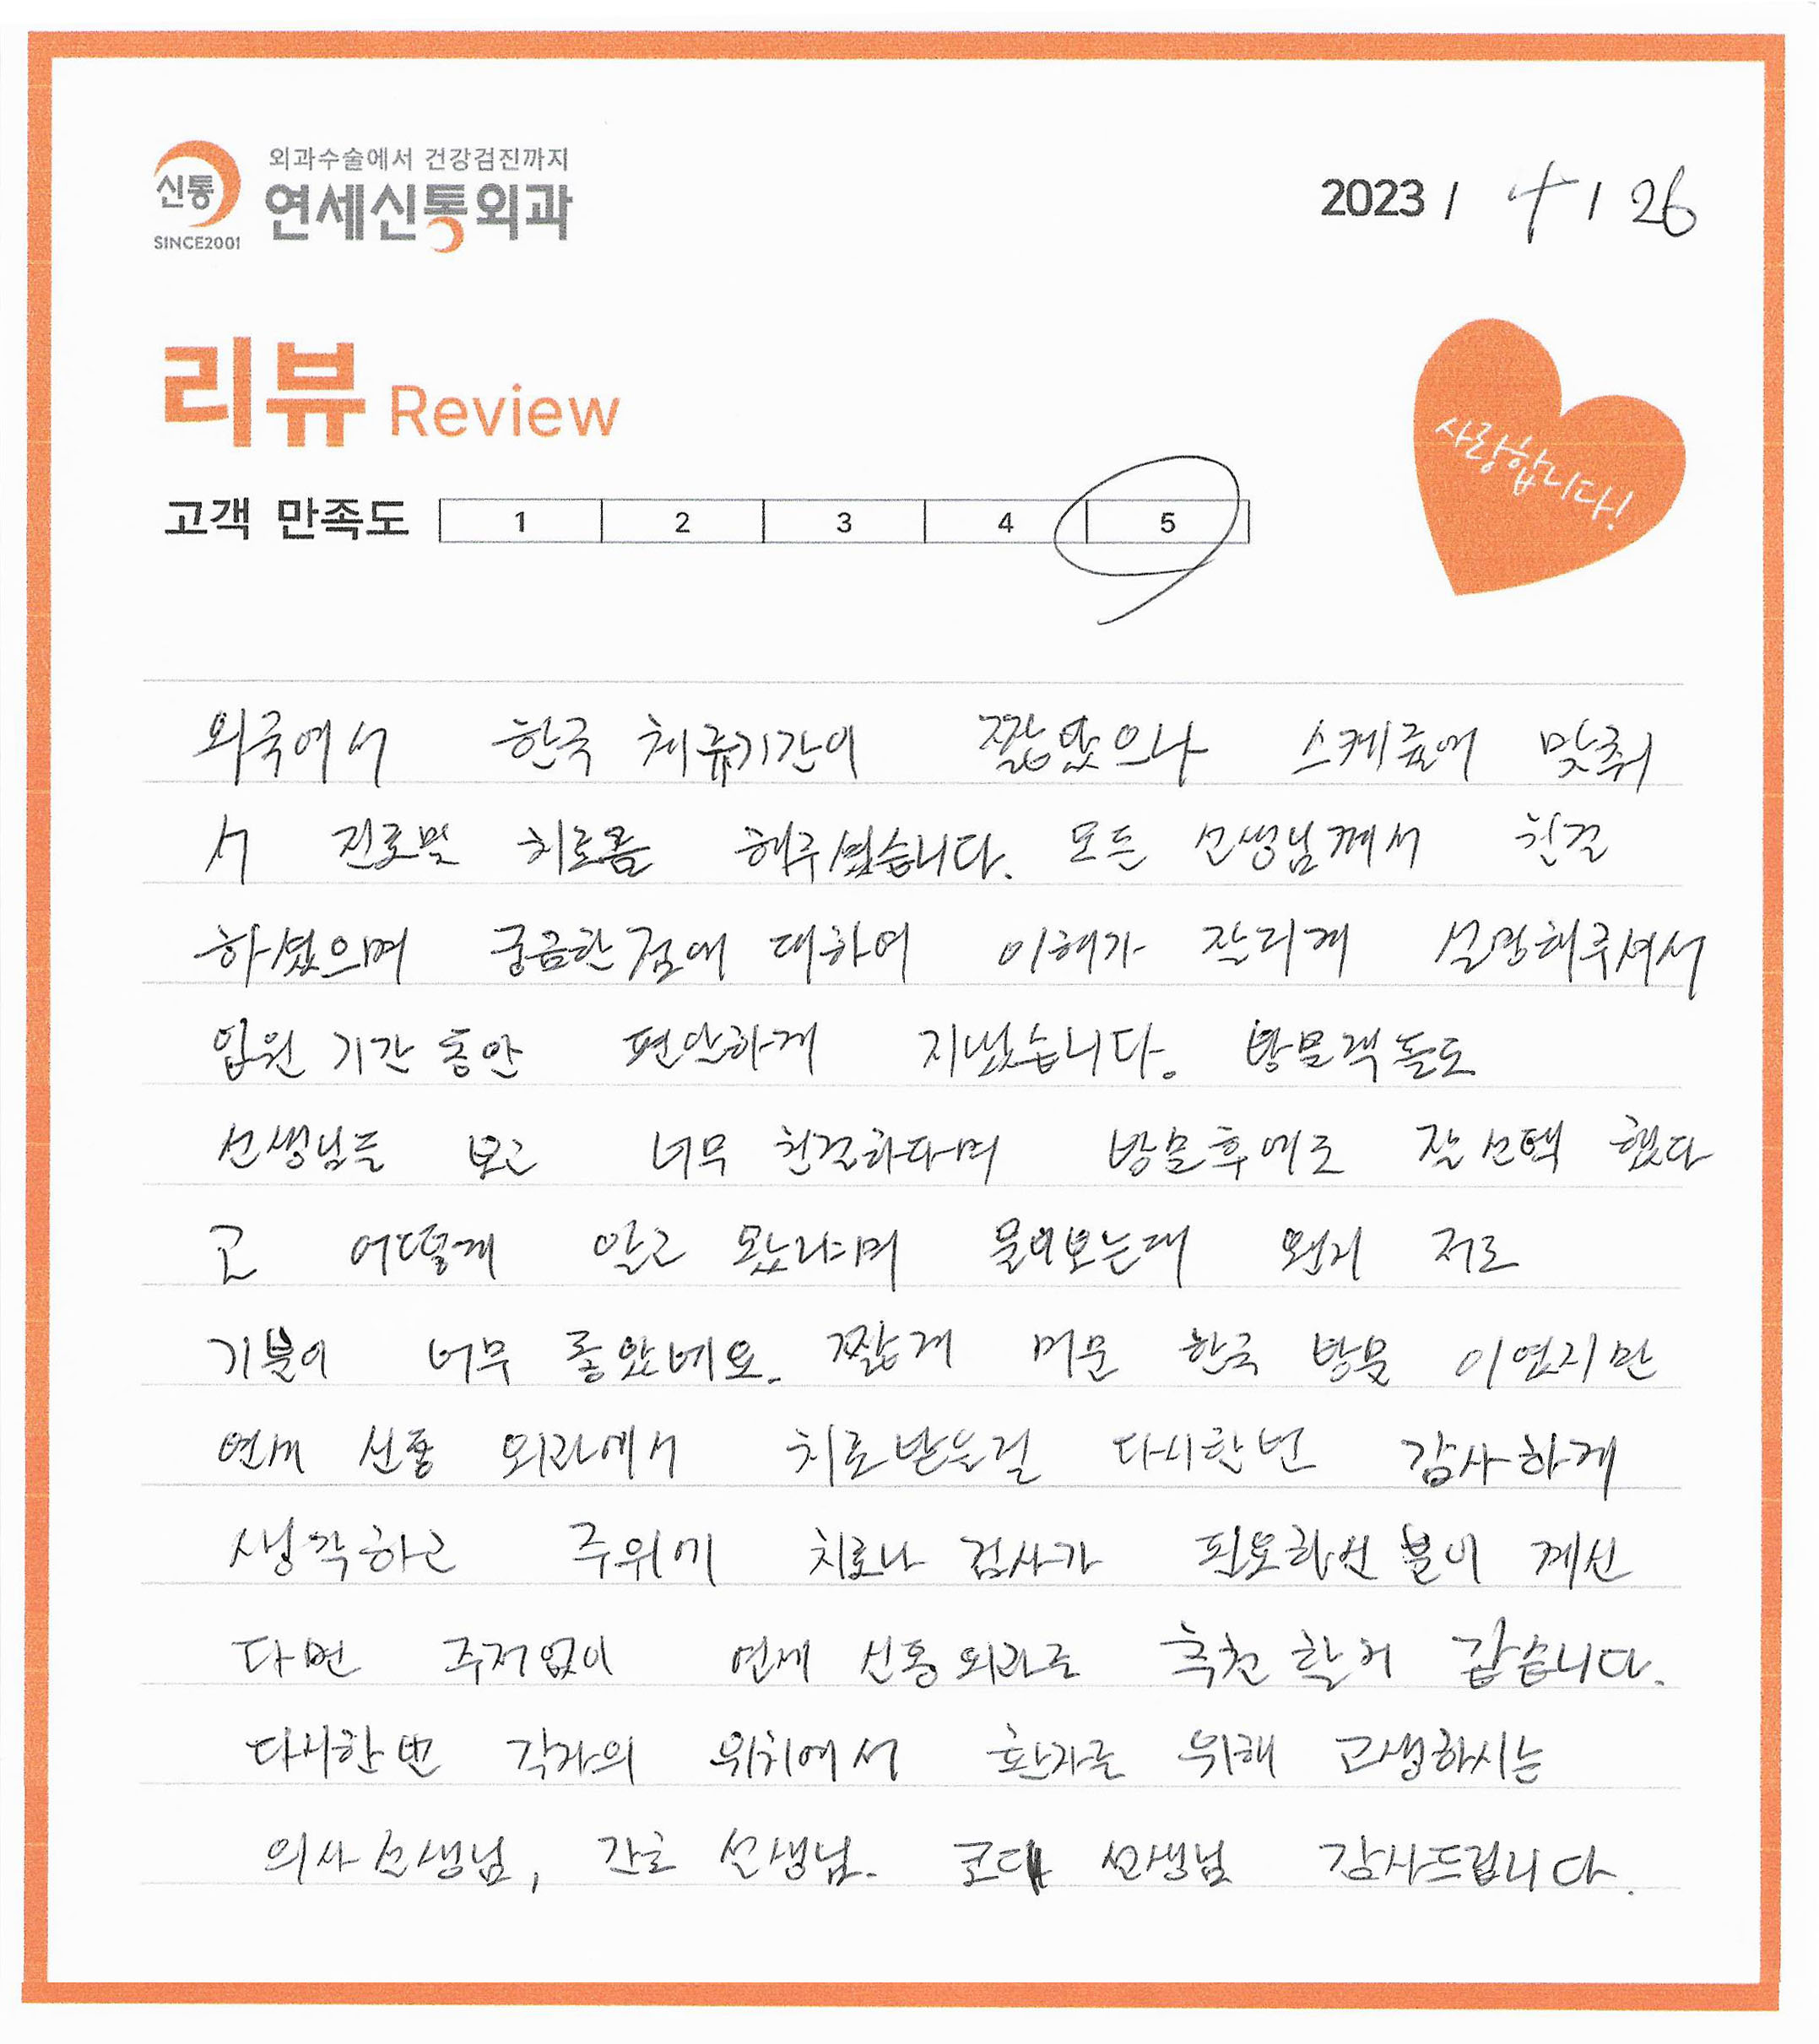 신통
SINCE2001
외과수술에서 건강검진까지
연세신통외과
2023 / 4 / 26
리뷰 Review
사랑합니다!
고객 만족도 1 2 3 4 5
외국에서 한국 체류기간이 짧았으나 스케쥴에 맞춰
서 진료및 치료를 해주셨습니다. 모든 선생님께서 친절
하셨으며 궁금한점에 대하여 이해가 잘되게 설명해주셔서
입원 기간 동안 편안하게 지냈습니다. 방문객들도
선생님들 보고 너무 친절하다며 방문후에도 잘 선택 했다
고 어떻게 알고 왔냐며 물어보는데 왠지 저도
기분이 너무 좋았네요. 짧게 머문 한국 방문 이였지만
연세 신통 외과에서 치료받은걸 다시한번 감사하게
생각하고 주위에 치료나 검사가 필요하신 분이 계신
다면 주저없이 연세 신통외과로 추천 할거 같습니다.
다시한번 각자의 위치에서 환자를 위해 고생하시는
의사선생님, 간호 선생님. 코디 선생님 감사드립니다.